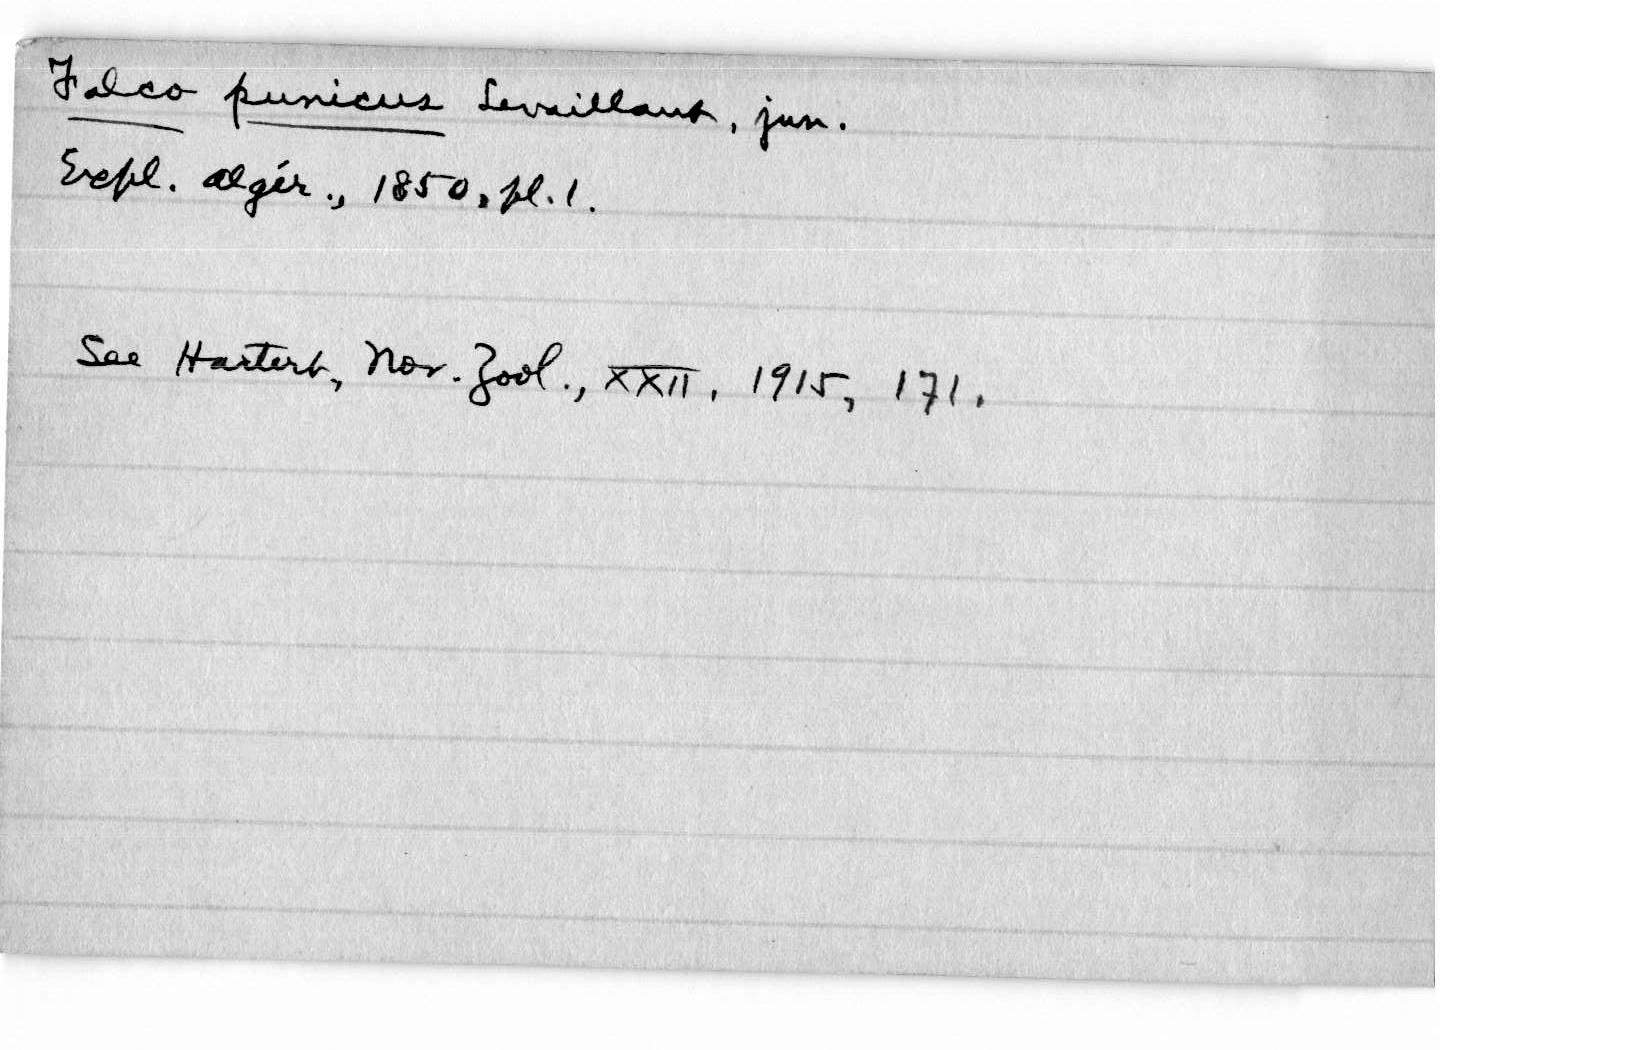 Falco punicus Levaillant, jun.
Expl. algér., 1850, pl. 1.
See Hartert, Nov. Zool., XXII, 1915, 171.